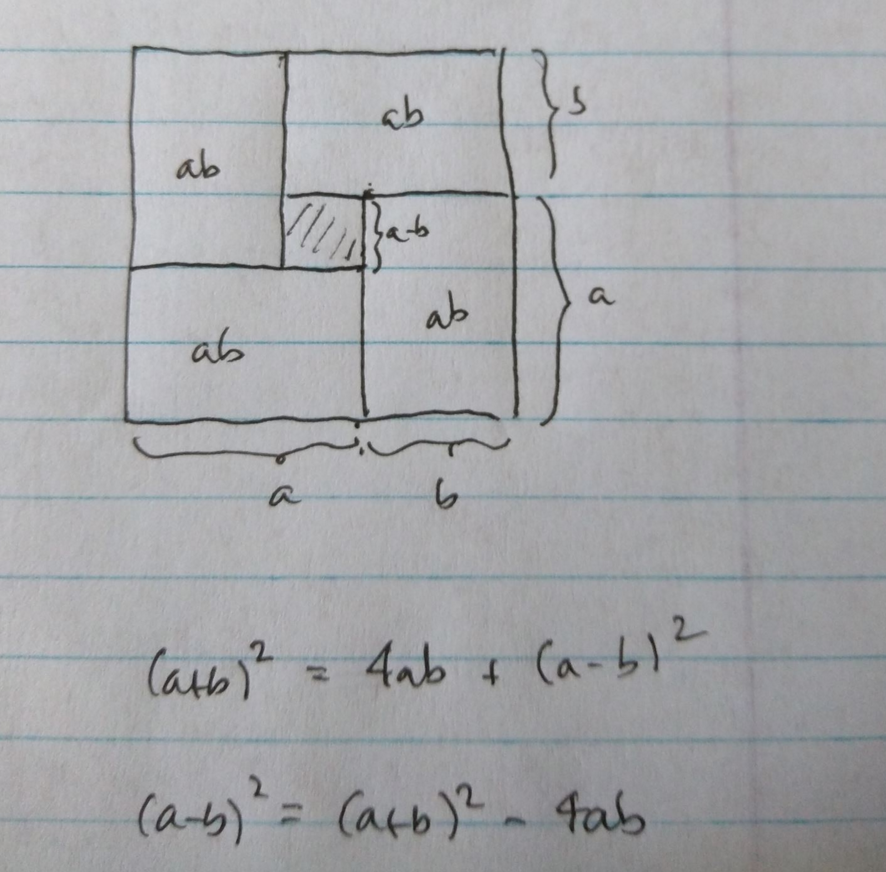 ab
b
ab
a-b
ab
a
ab
a b
(a+b)² = 4ab + (a-b)²
(a-b)² = (a+b)² - 4ab